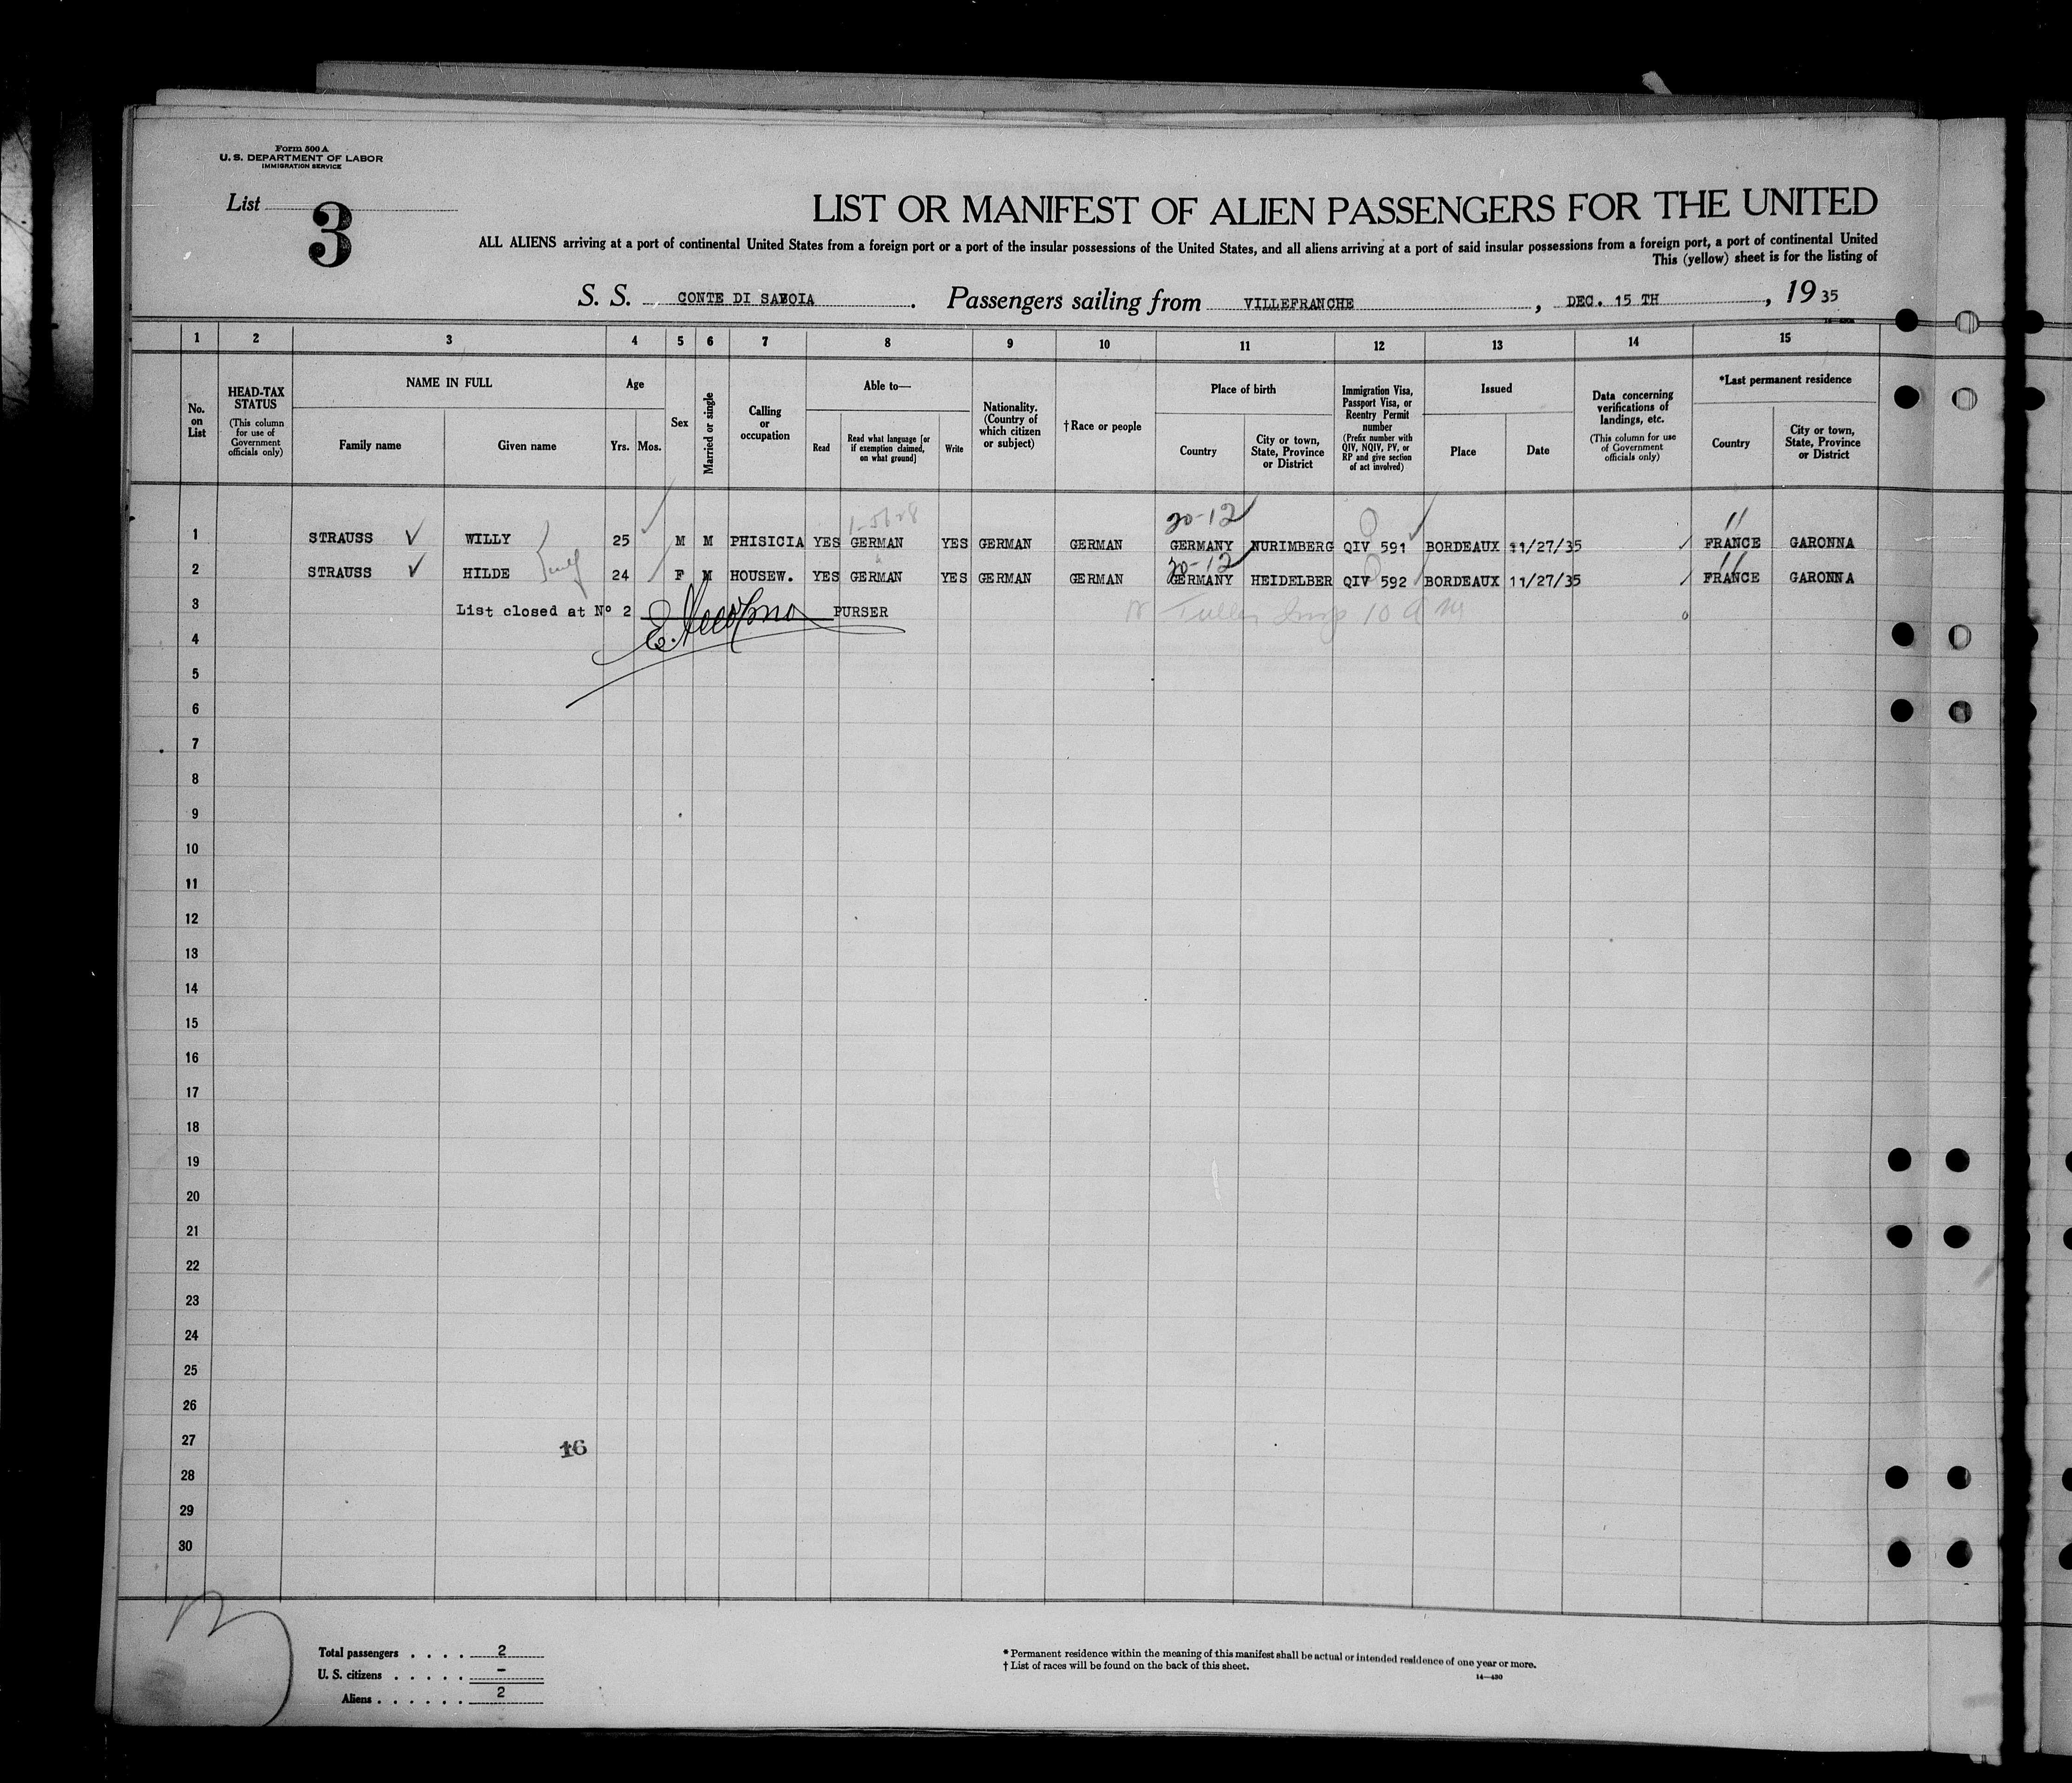 Form 500 A
U. S. DEPARTMENT OF LABOR
IMMIGRATION SERVICE
List 3
LIST OR MANIFEST OF ALIEN PASSENGERS FOR THE UNITED
ALL ALIENS arriving at a port of continental United States from a foreign port or a port of the insular possessions of the United States, and all aliens arriving at a port of said insular possessions from a foreign port, a port of continental United
This (yellow) sheet is for the listing of
S. S. CONTE DI SAVOIA . Passengers sailing from VILLEFRANCHE , DEC. 15 TH , 19 35
1 2 3 4 5 6 7 8 9 10 11 12 13 14 15
No. on List
HEAD-TAX STATUS (This column for use of Government officials only)
NAME IN FULL
Family name Given name
Age
Yrs. Mos.
Sex
Married or single
Calling or occupation
Able to—
Read Read what language [or if exemption claimed, on what ground] Write
Nationality. (Country of which citizen or subject)
†Race or people
Place of birth
Country City or town, State, Province or District
Immigration Visa, Passport Visa, or Reentry Permit number (Prefix number with QIV, NQIV, PV, or RP and give section of act involved)
Issued
Place Date
Data concerning verifications of landings, etc. (This column for use of Government officials only)
*Last permanent residence
Country City or town, State, Province or District
20-12
1 STRAUSS WILLY 25 M M PHISICIA YES GERMAN YES GERMAN GERMAN GERMANY NURIMBERG QIV 591 BORDEAUX 11/27/35 FRANCE GARONNA
20-12
2 STRAUSS HILDE 24 F M HOUSEW. YES GERMAN YES GERMAN GERMAN GERMANY HEIDELBER QIV 592 BORDEAUX 11/27/35 FRANCE GARONNA
3 List closed at Nº 2 PURSER
4
5
6
7
8
9
10
11
12
13
14
15
16
17
18
19
20
21
22
23
24
25
26
27
16
28
29
30
Total passengers . . . . 2
U. S. citizens . . . . . –
Aliens . . . . . . 2
* Permanent residence within the meaning of this manifest shall be actual or intended residence of one year or more.
† List of races will be found on the back of this sheet.
14—430